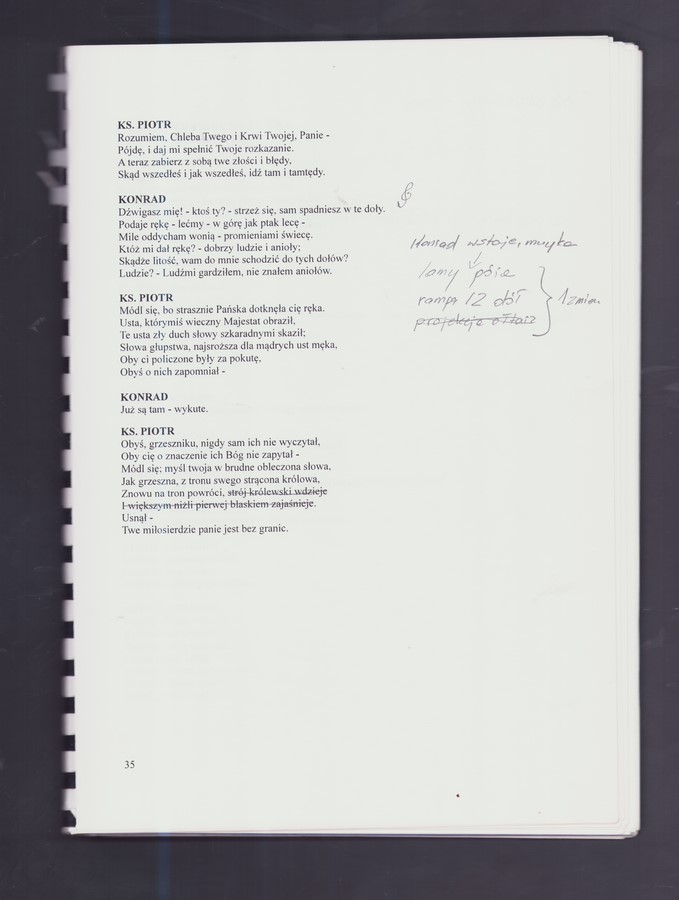 KS. PIOTR
Rozumiem, Chleba Twego i Krwi Twojej, Panie -
Pójdę, i daj mi spełnić Twoje rozkazanie.
A teraz zabierz z sobą twe złości i błędy,
Skąd wszedłeś i jak wszedłeś, idź tam i tamtędy.
KONRAD
Dźwigasz mię! - ktoś ty? - strzeż się, sam spadniesz w te doły.
Podaje rękę - lećmy - w górę jak ptak lecę -
Mile oddycham wonią - promieniami świecę.
Któż mi dał rękę? - dobrzy ludzie i anioły;
Skądże litość, wam do mnie schodzić do tych dołów?
Ludzie? - Ludźmi gardziłem, nie znałem aniołów.
Konrad wstaje, muzyka
KS. PIOTR
Módl się, bo strasznie Pańska dotknęła cię ręka.
Usta, którymiś wieczny Majestat obraził,
Te usta zły duch słowy szkaradnymi skaził;
Słowa głupstwa, najsroższa dla mądrych ust męka,
Oby ci policzone były za pokutę,
Obyś o nich zapomniał -
rampa 12 dół
projekcja
KONRAD
Już są tam - wykute.
KS. PIOTR
Obyś, grzeszniku, nigdy sam ich nie wyczytał,
Oby cię o znaczenie ich Bóg nie zapytał -
Módl się; myśl twoja w brudne obleczona słowa,
Jak grzeszna, z tronu swego strącona królowa,
Znowu na tron powróci, strój królewski wdzieje
I większym niźli pierwej blaskiem zajaśnieje.
Usnął -
Twe miłosierdzie panie jest bez granic.
35